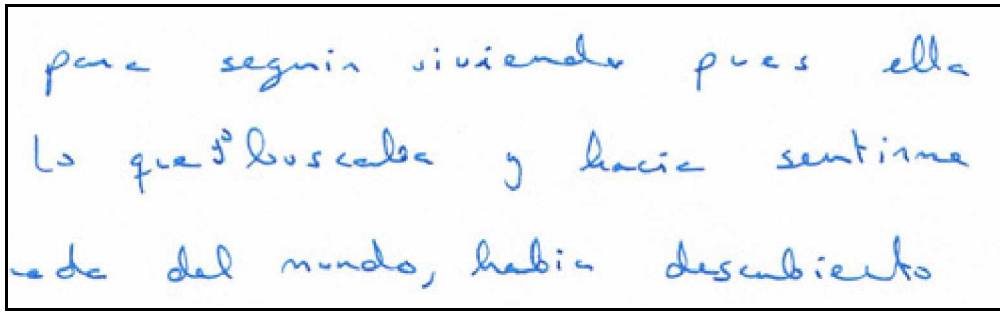 para seguir viviendo pues ella
lo que yo buscaba y hacia sentirme
del mundo, habia descubierto